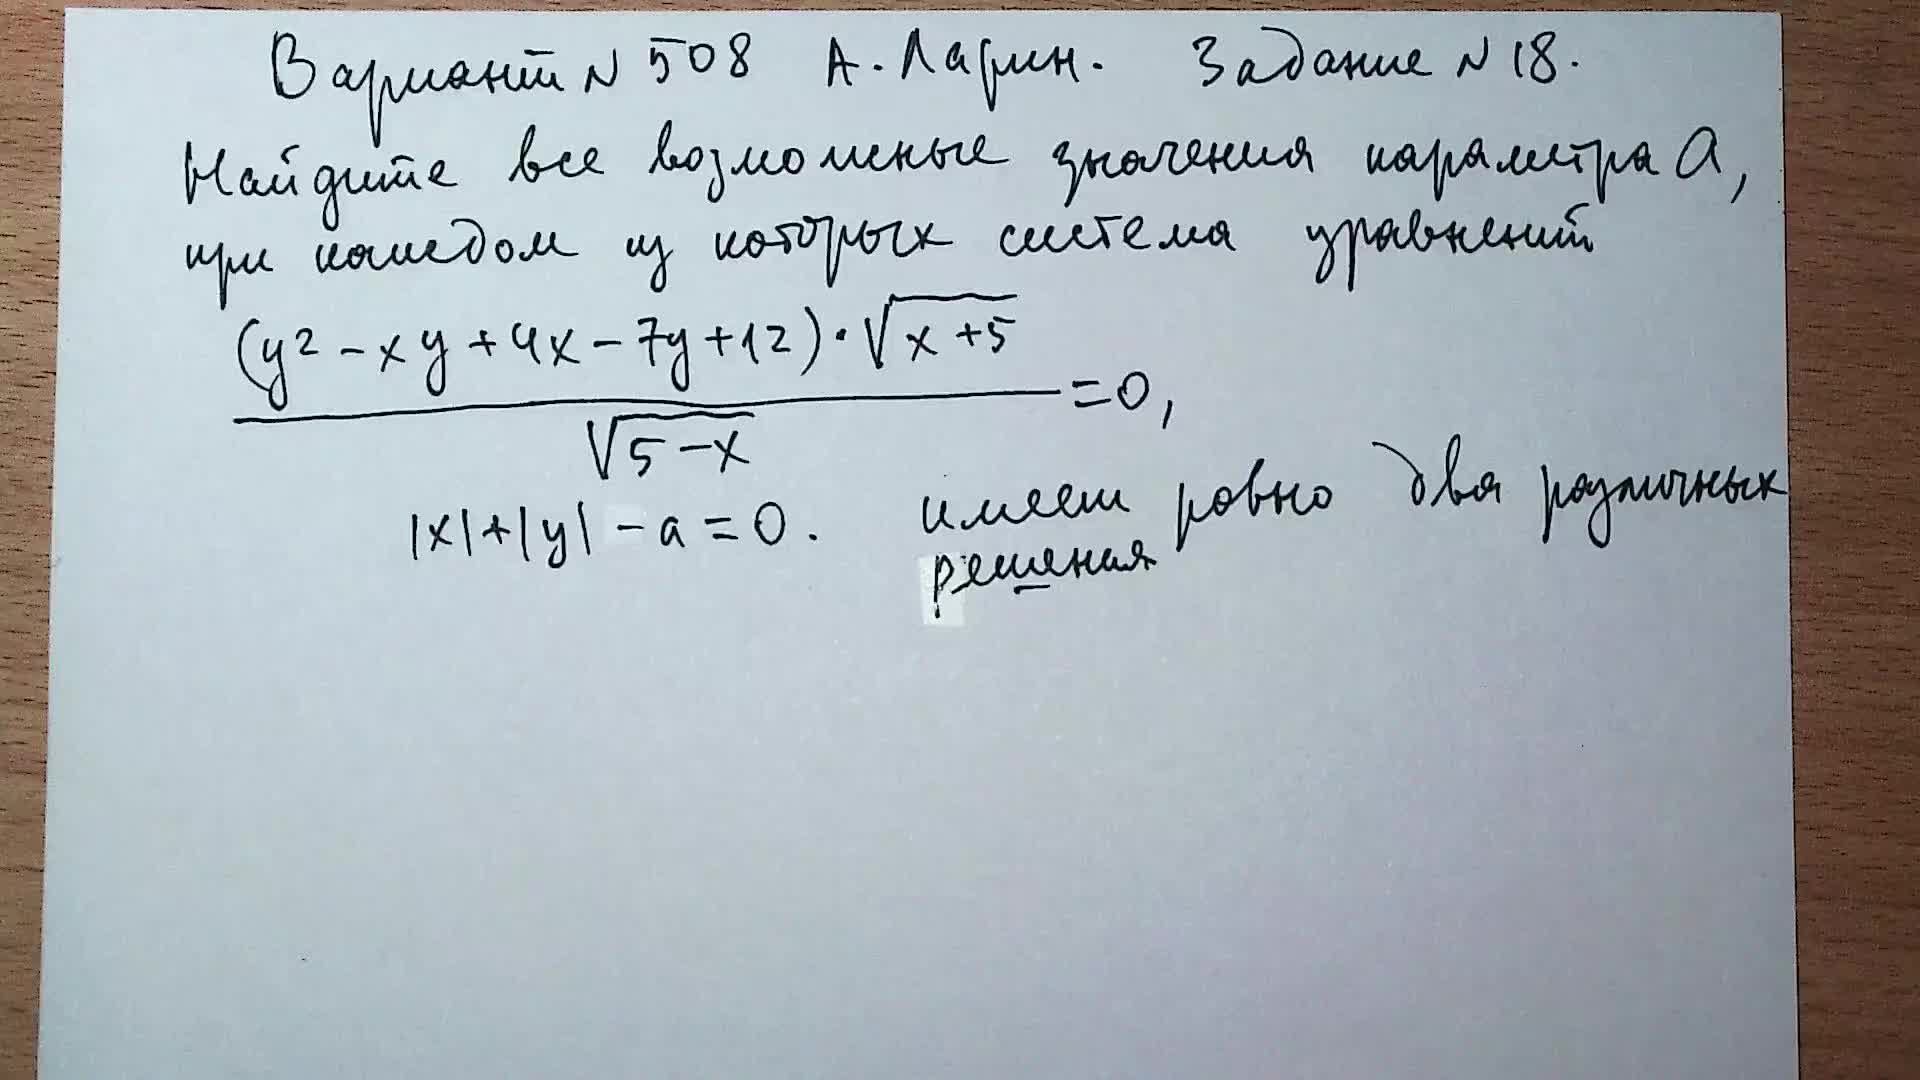 Вариант N 508 А. Ларин. Задание N 18.
Найдите все возможные значения параметра a,
при каждом из которых система уравнений
(y² - xy + 4x - 7y + 12) · √(x + 5)
= 0,
√(5 - x)
|x| + |y| - a = 0. имеет ровно два различных
решения